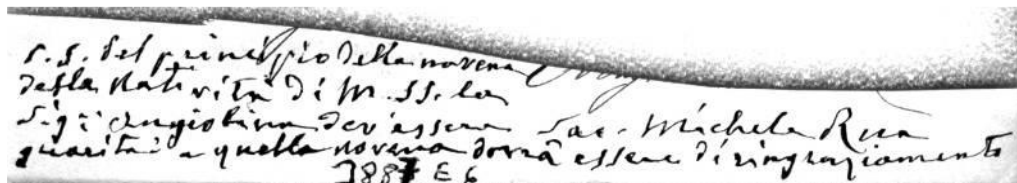 S. S. del principio della novena
della Natività di M. SS. la
Sig.ª Angiolina dev'essere Sac. Michele Rua
guarita: e quella novena dovrà essere di ringraziamento
3887 E 6